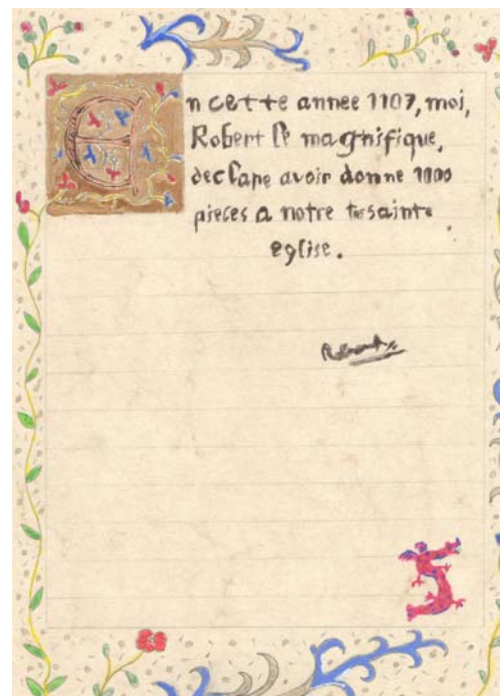 En cette annee 1107, moi,
Robert le magnifique,
declare avoir donne 1000
pieces a notre tres sainte
eglise.
Robert